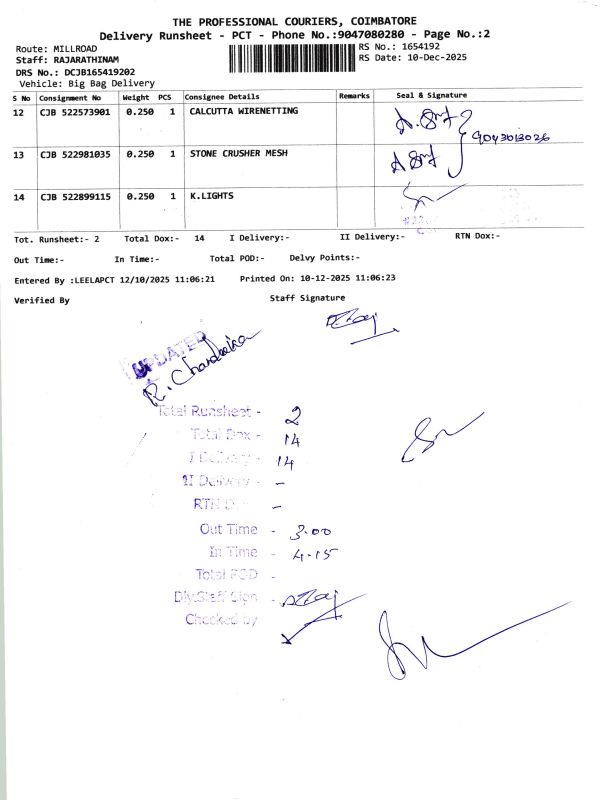 THE PROFESSIONAL COURIERS, COIMBATORE
Delivery Runsheet - PCT - Phone No.:9047080280 - Page No.:2
Route: MILLROAD
RS No.: 1654192
Staff: RAJARATHINAM
RS Date: 10-Dec-2025
DRS No.: DCJB165419202
Vehicle: Big Bag Delivery
S No Consignment No Weight PCS Consignee Details Remarks Seal & Signature
12 CJB 522573901 0.250 1 CALCUTTA WIRENETTING
9043013026
13 CJB 522981035 0.250 1 STONE CRUSHER MESH
14 CJB 522899115 0.250 1 K.LIGHTS
Tot. Runsheet:- 2 Total Dox:- 14 I Delivery:- II Delivery:- RTN Dox:-
Out Time:- In Time:- Total POD:- Delvy Points:-
Entered By :LEELAPCT 12/10/2025 11:06:21 Printed On: 10-12-2025 11:06:23
Verified By Staff Signature
UPDATED
R. Chandrika
Total Runsheet - 2
Total Dox - 14
I Delivery - 14
II Delivery - -
RTN D -
Out Time - 3.00
In Time - 4.15
Total POD -
Dly.Staff Sign -
Checked by